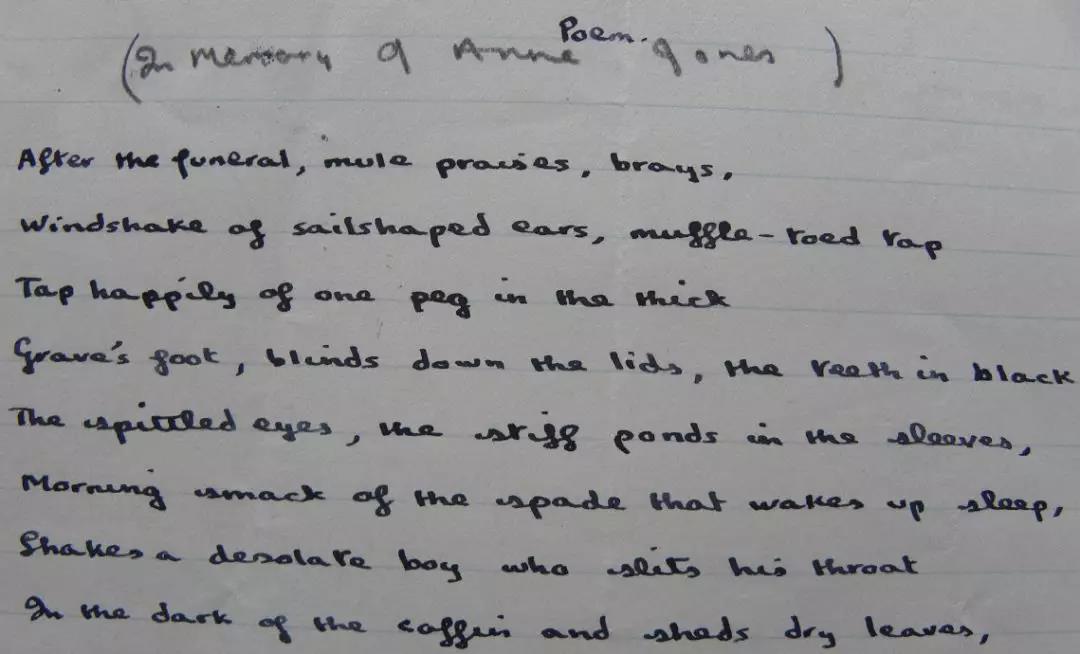 Poem.
(In memory of Anne Jones)
After the funeral, mule praises, brays,
Windshake of sailshaped ears, muffle-toed tap
Tap happily of one peg in the thick
Grave's foot, blinds down the lids, the teeth in black
The spittled eyes, the stiff ponds in the sleeves,
Morning smack of the spade that wakes up sleep,
Shakes a desolate boy who slits his throat
In the dark of the coffin and sheds dry leaves,